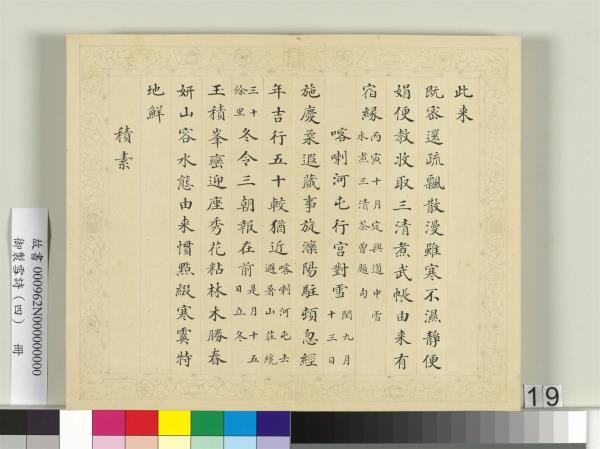 此来
既密還疏飄散漫雖寒不濕靜便
娟便教收取三清煮武帳由来有
宿緣丙寅十月定興道中雪水煮三清茶曾題句
喀喇河屯行宮對雪閏九月十三日
施慶柔遐蕆事旋灤陽駐頓忽經
年吉行五十較猶近喀喇河屯去避暑山莊統
三十餘里冬令三朝報在前是月十五日立冬
玉積峯巒迎座秀花粘林木勝春
妍山容水態由来慣點綴寒雲特
地鮮
積素
故書000962N000000000
御製雪詩(四) 冊
19